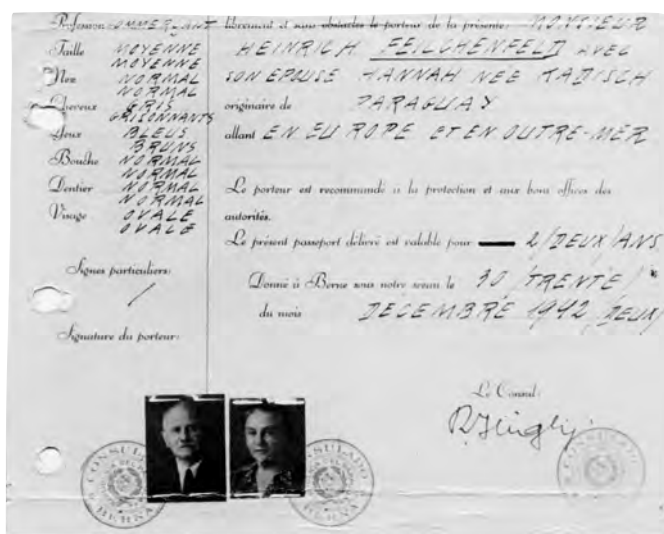 Profession COMMERÇANT
Taille MOYENNE
MOYENNE
Nez NORMAL
NORMAL
Cheveux GRIS
GRISONNANTS
Yeux BLEUS
BRUNS
Bouche NORMAL
NORMAL
Dentier NORMAL
NORMAL
Visage OVALE
OVALE
Signes particuliers:
/
Signature du porteur:
librement et sans obstacles le porteur de la présente: MONSIEUR
HEINRICH FEILCHENFELD AVEC
SON EPOUSE HANNAH NEE KADISCH
originaire de PARAGUAY
allant EN EUROPE ET EN OUTRE-MER
Le porteur est recommandé à la protection et aux bons offices des
autorités.
Le présent passeport délivré est valable pour 2/DEUX/ANS
Donné à Berne sous notre sceau le 30/TRENTE/
du mois DECEMBRE 1942/DEUX/
Le Consul:
CONSULADO
BERNA
CONSULADO
BERNA